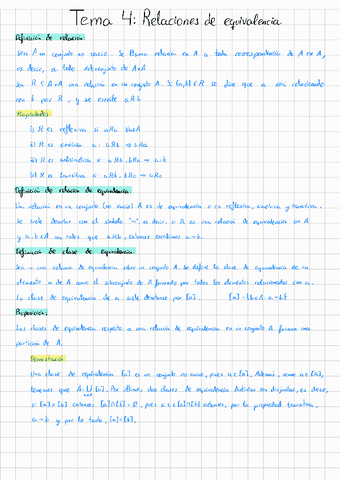 Tema 4: Relaciones de equivalencia
Definición de relación:
Sea A un conjunto no vacío. Se llama relación en A a toda correspondencia de A en A,
es decir, a todo subconjunto de AxA
Sea R ⊆ AxA una relación en un conjunto A. Si (a,b) ∈ R se dice que a está relacionado
con b por R, y se escribe aRb.
Propiedades:
i) R es reflexiva si aRa ∀a∈A
ii) R es simétrica si aRb ⇒ bRa
iii) R es antisimétrica si aRb, bRa ⇒ a=b
iv) R es transitiva si aRb, bRc ⇒ aRc
Definición de relación de equivalencia:
Una relación en un conjunto (no vacío) A es de equivalencia si es reflexiva, simétrica y transitiva.
Se suele denotar con el símbolo "~", es decir, si R es una relación de equivalencia en A
y a,b∈A son tales que aRb, entonces escribimos a~b.
Definición de clase de equivalencia:
Sea ~ una relación de equivalencia sobre un conjunto A. Se define la clase de equivalencia de un
elemento a de A como el subconjunto de A formado por todos los elementos relacionados con a.
La clase de equivalencia de a suele denotarse por [a]. [a]={b∈A: a~b}
Proposición:
Las clases de equivalencia respecto a una relación de equivalencia en un conjunto A forman una
partición de A.
Demostración
Una clase de equivalencia [a] es un conjunto no vacío, pues a∈[a]. Además, como a∈[a],
tenemos que A=∪[a]. Por último, dos clases de equivalencia distintas son disjuntas, es decir,
si [a]≠[b] entonces [a]∩[b]=∅, pues si c∈[a]∩[b] entonces, por la propiedad transitiva,
a~b y por lo tanto, [a]=[b].